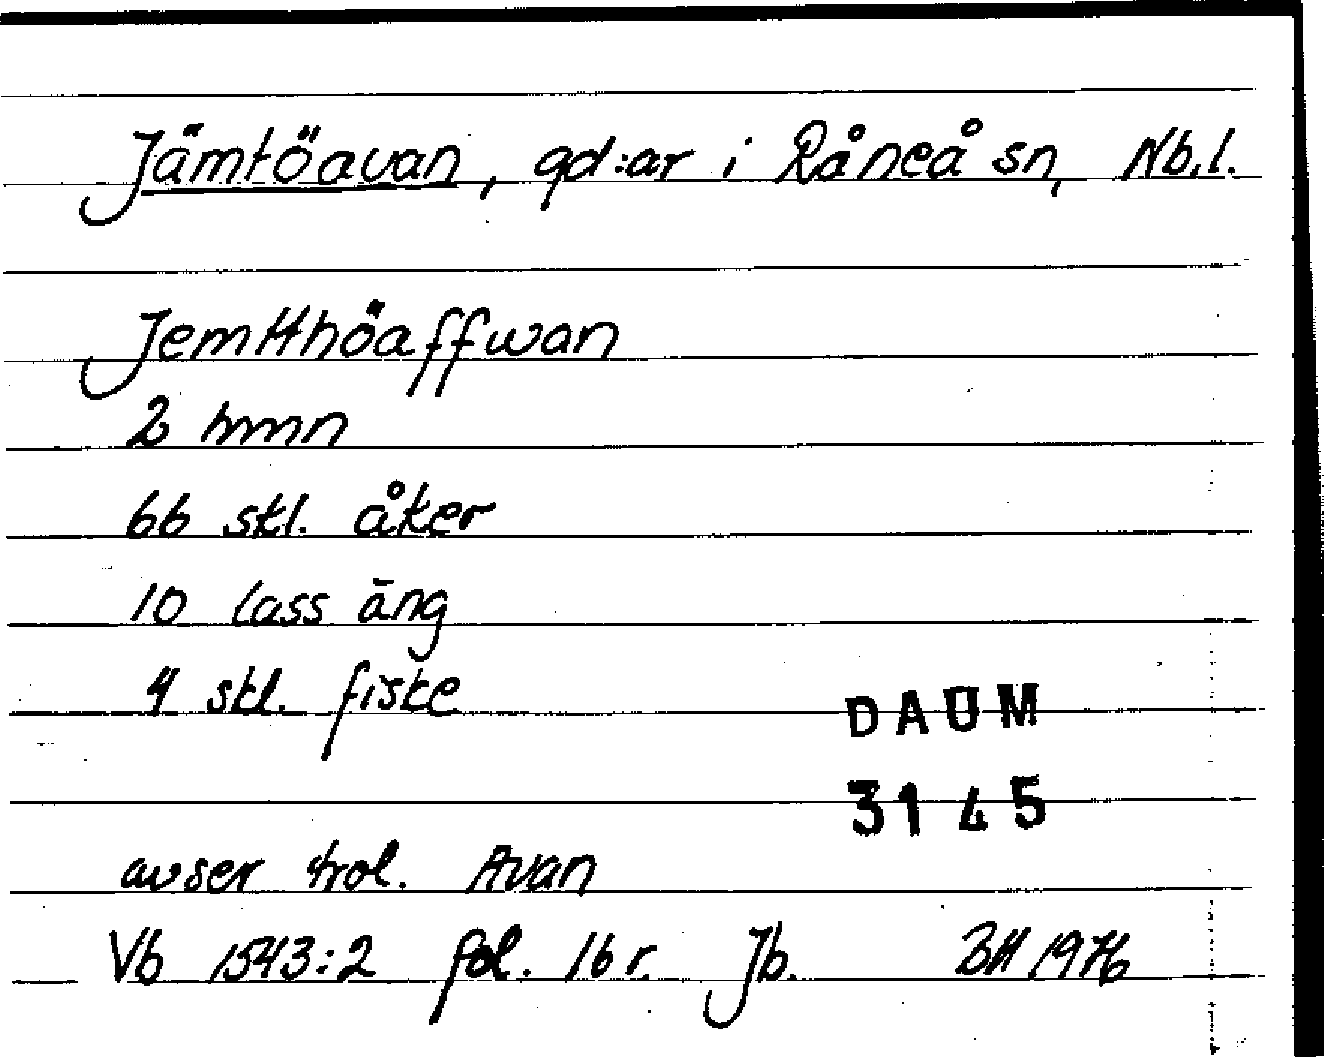 Jämtöavan, gd:ar i Råneå sn, Nb.l.
Jemtthöaffwan
2 hmn
66 skl. åker
10 lass äng
4 skl. fiske
DAUM
3145
avser trol. Avan
Vb 1543:2 fol. 16 r. Jb. BH 1976